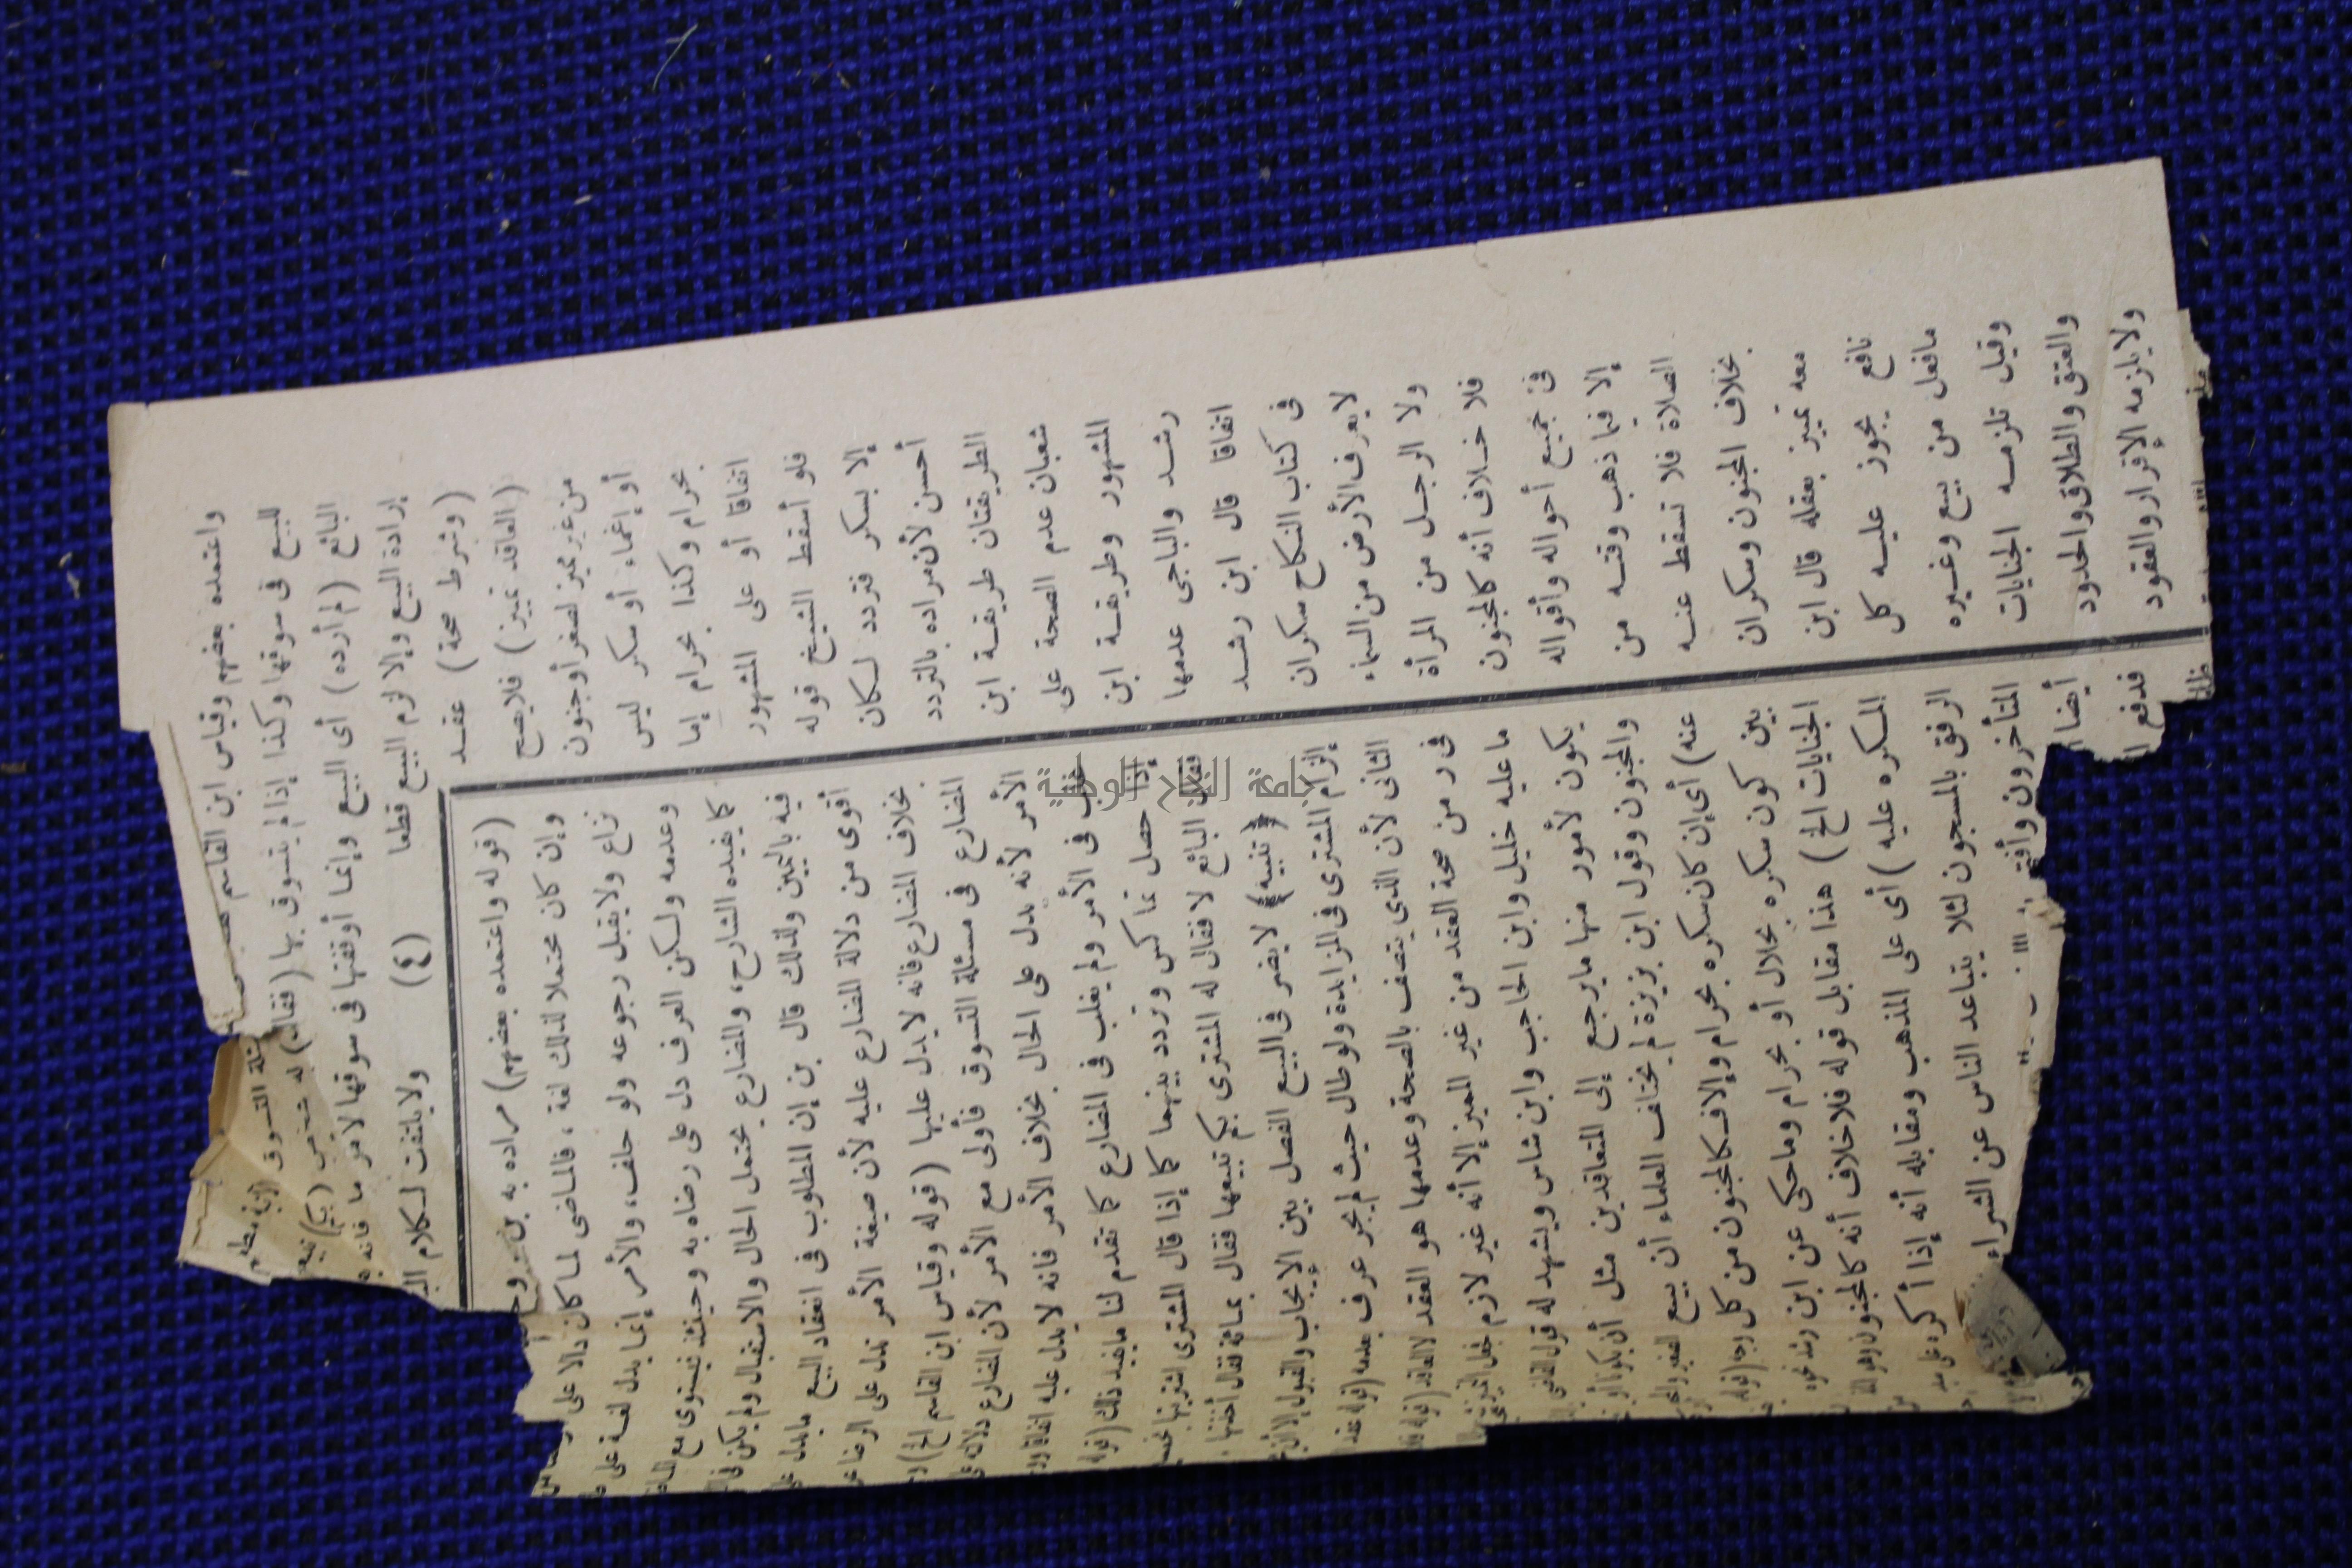 واعتمده بعضهم وقياس ابن القاسم
للبيع في سوقها وكذا إذا لم يتسوق بها (فقال) له شخص (بكم)
البائع (لم أرده) أى البيع وإنما أوقفتها فى سوقها لأمر ما فانه
إرادة البيع وإلا لزم البيع قطعا (٤) ولا يلتفت لكلام
(وشرط صحة) عقد
(العاقد تمييز) فلا يصح
من غير مميز لصغر أو جنون
أو إغماء أو سكر ليس
بحرام وكذا بحرام إما
اتفاقا أو على المشهور
فلو أسقط الشيخ قوله
إلا بسكر فتردد لكان
أحسن لأن مراده بالتردد
الطريقتان طريقة ابن
شعبان عدم الصحة على
المشهور وطريقة ابن
رشد والباجى عدمها
اتفاقا قال ابن رشد
فى كتاب النكاح سكران
لا يعرف الأرض من السماء
ولا الرجل من المرأة
فلا خلاف أنه كالمجنون
فى جميع أحواله وأقواله
إلا فيما ذهب وقته من
الصلاة فلا تسقط عنه
بخلاف المجنون وسكران
معه تمييز بعقله قال ابن
نافع يجوز عليه كل
مافعل من بيع وغيره
وقيل تلزمه الجنايات
والعتق والطلاق والحدود
ولا يلزمه الإقرار والعقود
(قوله واعتمده بعضهم) مراده به بن
وإن كان محتملا لذلك لغة، فالماضى لما كان دالا على
نزاع ولا يقبل رجوعه ولو حلف، والأمر إنما يدل لغة على
وعدمه ولكن العرف دل على رضاه به وحينئذ فيستوى مع
كما يفيده الشارح، والمضارع يحتمل الحال والاستقبال ولم يكن فى
فيه باليمين ولذلك قال بن إن المطلوب فى انعقاد البيع ما يدل على
أقوى من دلالة المضارع عليه لأن صيغة الأمر تدل على الرضا
بخلاف المضارع فانه لا يدل عليها (قوله وقياس ابن القاسم الخ)
المضارع فى مسئلة التسوق فأولى مع الأمر لأن المضارع دلالته
الأمر لأنه يدل على الحال بخلاف الأمر فانه لا يدل عليه اتفاقا
فى الأمر ولم يغلب فى المضارع كما تقدم لنا ما يفيد ذلك (قوله
حصل تماكس وتردد بينهما كما إذا قال المشترى
فقال البائع لا فقال له المشترى بكم تبيعها فقال بمائة فقال أخذتها
﴿تنبيه﴾ لا يضر فى البيع الفصل بين الايجاب والقبول إلا أن
إلزام المشترى فى المزايدة ولو طال حيث لم يجر عرف بعدمه (قوله عقد
الثانى لأن الذى يتصف بالصحة وعدمها هو العقد لا العاقد (قوله
فى ر من صحة العقد من غير المميز إلا أنه غير لازم فجعل التمييز
ما عليه خليل وابن الحاجب وابن شاس ويشهد له قول القاضى
يكون لأمور منها ما يرجع إلى المتعاقدين مثل أن يكونا
والمجنون وقول ابن بزيزة لم يختلف العلماء أن بيع الصغير
عنه) أى إن كان سكره بحرام وإلا فكالمجنون من كل وجه (قوله
بين كون سكره بحلال أو بحرام وماحكى عن ابن رشد نحوه
الجنايات الخ) هذا مقابل قوله فلا خلاف أنه كالمجنون
المكره عليه) أى على المذهب ومقابله أنه إذا أكره على
الرفق بالمسجون لئلا يتباعد الناس عن الشراء
المتأخرون وأفتى
أيضا
فدفع
جامعة النجاح الوطنية